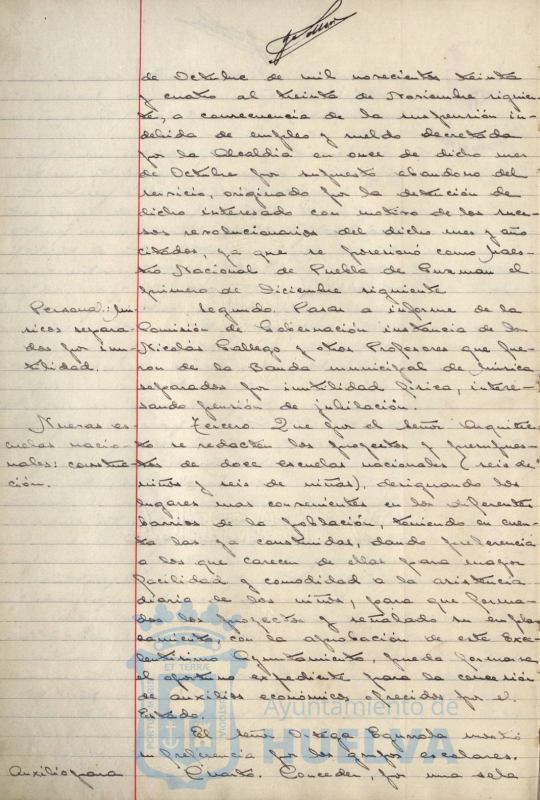 de Octubre de mil novecientos treinta
y cuatro al treinta de Noviembre siguien-
te, a consecuencia de la suspensión in-
debida de empleo y sueldo decretada
por la Alcaldía en once de dicho mes
de Octubre por supuesto abandono del
servicio, originado por la detención de
dicho interesado con motivo de los suce-
sos revolucionarios del dicho mes y año
citados, ya que se posesionó como Maes-
tro Nacional de Puebla de Guzman el
primero de Diciembre siguiente
Personal: Mú-
sicos separa-
dos por inu-
tilidad.
Segundo. Pasar a informe de la
Comisión de Gobernación instancia de Don
Nicolás Gallego y otros Profesores que fue-
ron de la Banda municipal de música
separados por inutilidad física, intere-
sando pensión de jubilación.
Nuevas es-
cuelas nacio-
nales: construc-
ción.
Tercero. Que por el señor Arquitec-
to se redacten los proyectos y presupues-
tos de doce escuelas nacionales (seis de
niños y seis de niñas), designando los
lugares mas convenientes en los diferentes
barrios de la población, teniendo en cuen-
ta las ya construidas, dando preferencia
a los que carecen de ellas para mayor
facilidad y comodidad a la asistencia
diaria de los niños, para que forma-
dos los proyectos y señalado su empla-
zamiento, con la aprobación de este Exce-
lentísimo Ayuntamiento, pueda formarse
el oportuno expediente para la concesión
de auxilios económicos ofrecidos por el
Estado.
El señor Ortega mostró
su preferencia por los grupos escolares.
Auxilio para
Cuarto. Conceder por una sola
Ayuntamiento de
HUELVA